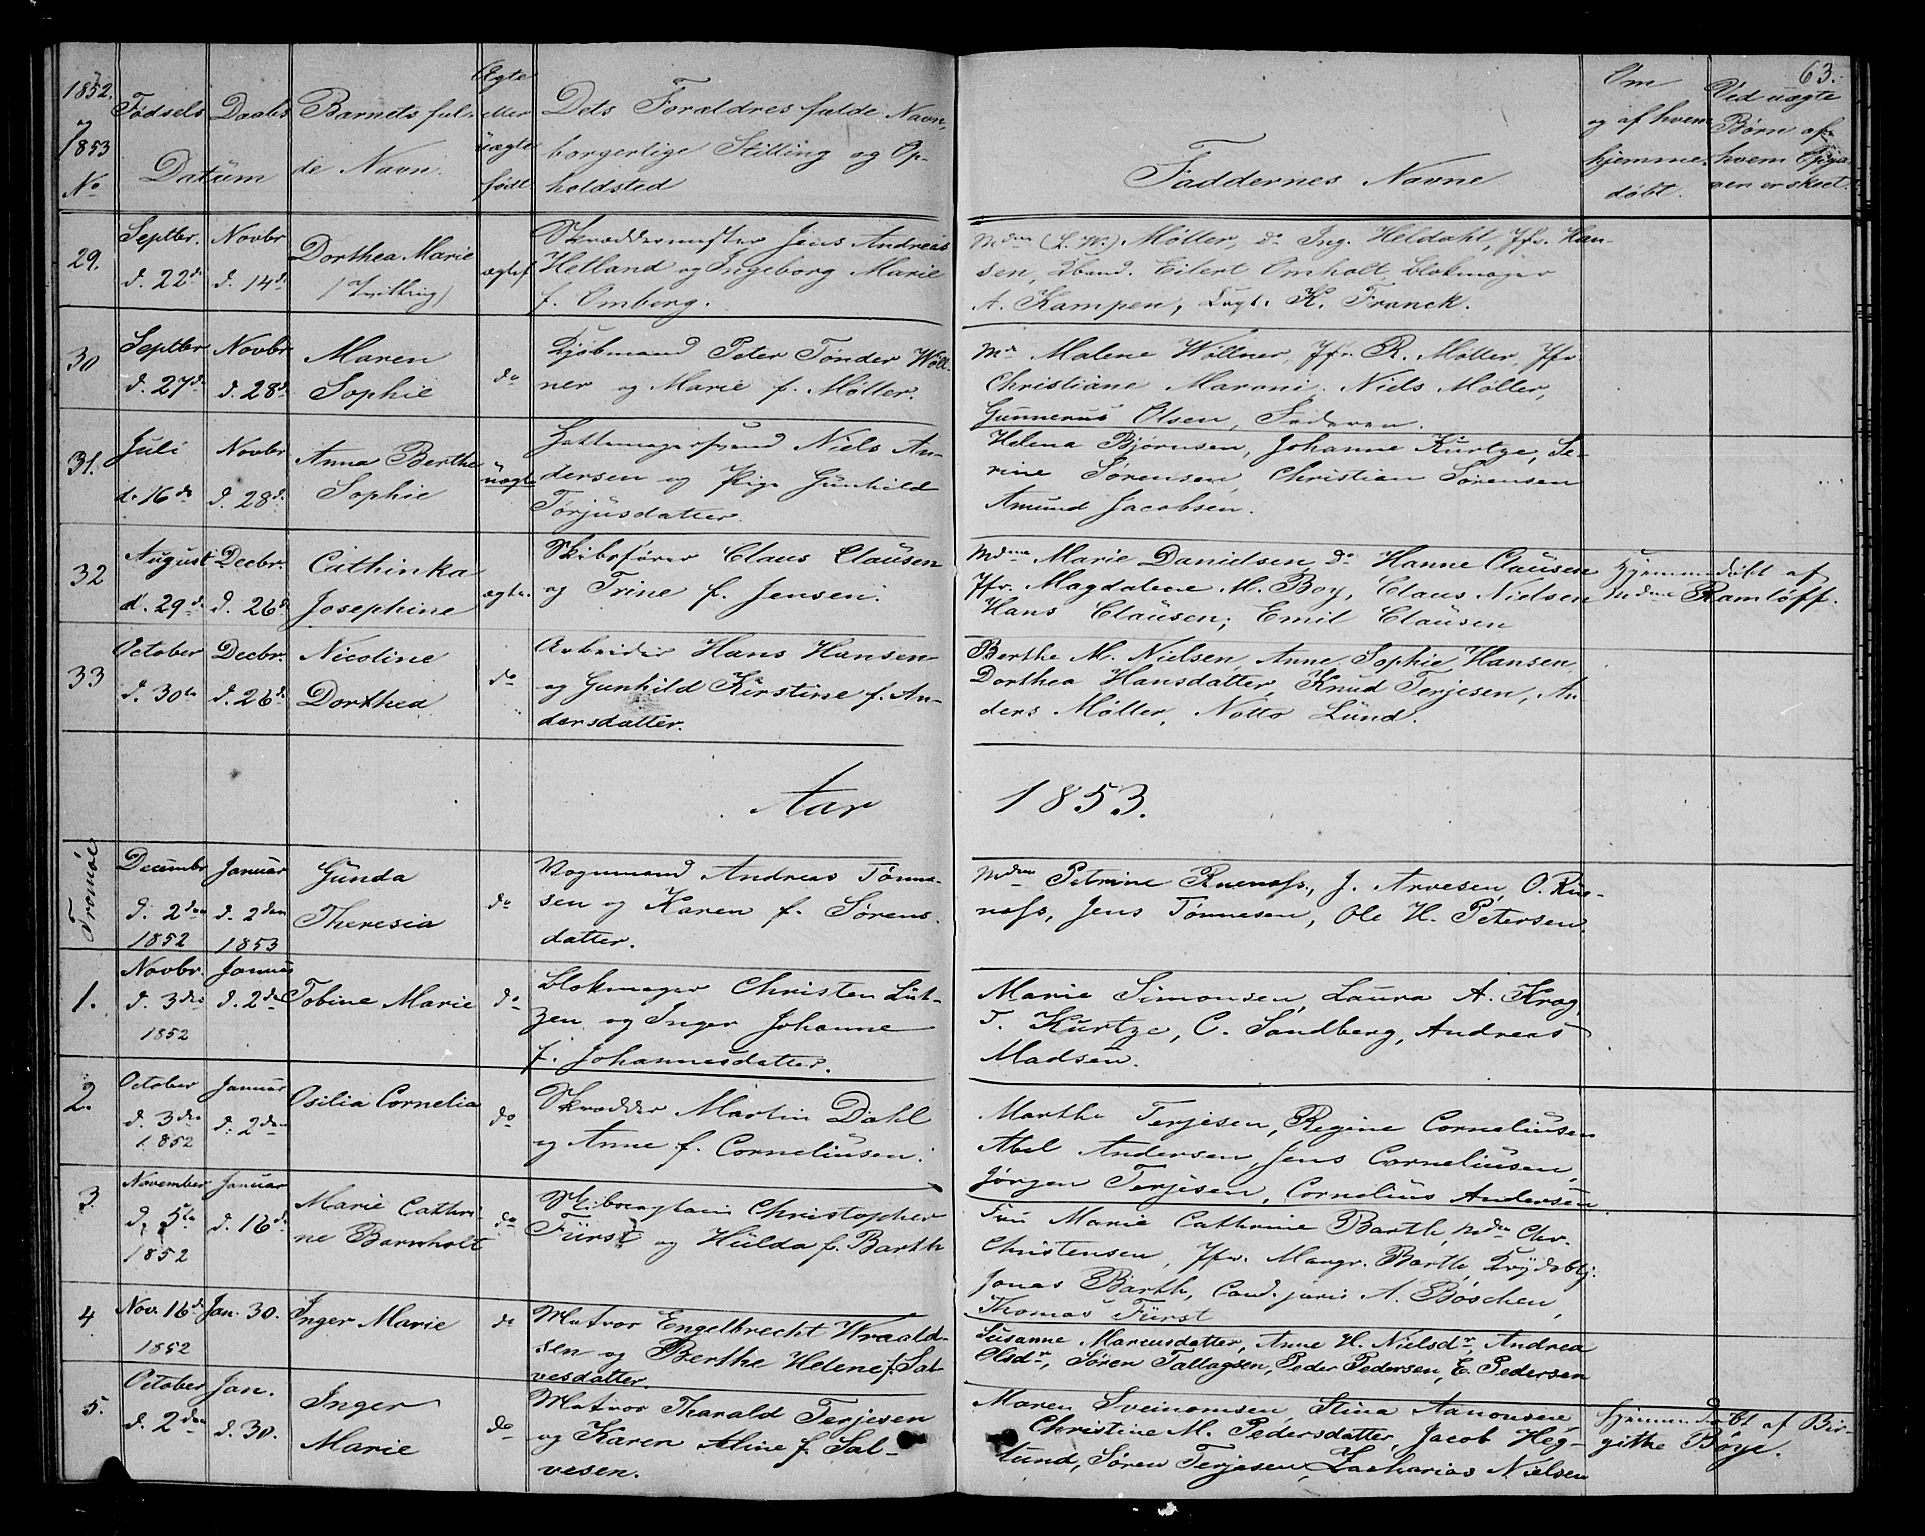 63.
1852.
og
1853
No
Fødsels Daabs
Datüm
Barnets ful-
de Navn.
Ægte
eller
üægte
født
Dets Forældres fulde Navn,
borgerlige Stilling og Op-
holdsted
Faddernes Navne
Om
og af hvem
hjemme-
døbt.
Ved uægte
Børn af
hvem
ven er skeet.
29.
Septbr.
d. 22d
Novbr
d. 14d
Dorthea Marie
(Tvilling)
ægtef
Skræddermester Jens Andreas
Hetland og Ingeborg Marie
f. Omberg.
Mdm (L. W.) Møller, do Ing. Heldahl, Jfr. Han-
sen, Eilert Omholt, Blokmager
A. Kampen, K. Franck.
30
Septbr
d. 27d
Novbr
d. 28d
Maren
Sophie
do
Kjøbmand Peter Tønder Wöll-
ner og Marie f. Møller.
Md Malene Wöllner, Jfr. R. Møller, Jfr
Christiane Maroni, Niels Møller,
Gunnerus Olsen, Faderen.
31.
Juli
d. 16de
Novbr
d. 28d
Anna Berthe
Sophie
üægte
Hattemagersvend Niels An-
dersen og Pige Günhild
Torjüsdatter.
Helena Bjørnsen, Johanne Kurtze, Se-
rine Sørensen, Christian Sørensen
Amund Jacobsen.
32
August
d. 29d
Decbr.
d. 26d
Cathinka
Josephine
ægte.
Skibsfører Claus Claüsen
og Trine f. Jensen.
Mdme Marie Danielsen, do Hanne Claüsen
Jfr. Magdalene M. Boy, Claus Nielsen
Hans Claüsen, Emil Claüsen
Hjemmedøbt af
Mdme Ramløff.
33
October
d. 30te
Decbr.
d. 26d
Nicoline
Dorthea
do
Arbeider Hans Hansen
og Gunhild Kirstine f. An-
dersdatter.
Berthe M. Nielsen, Anne Sophie Hansen
Dorthea Hansdatter, Knud Terjesen, An
ders Møller, Notto Lünd.
Aar 1853.
Tromøe
Decembr
d. 2den
1852
Januar
d. 2den
1853
Günda
Theresia
do
Vognmand Andreas Tønne-
sen og Karen f. Sørens-
datter.
Mdm Petrine Ruenæss, J. Arvesen, O. Rue-
næss, Jens Tønnesen, Ole H. Petersen.
1.
Novbr.
d. 3die
1852
Januar
d. 2den
Tobine Marie
do
Blokmager Christen Lüt-
zen og Inger Johanne
f. Johannesdatter.
Marie Simonsen, Laura A. Krog
T. Kurtze, C. Sandberg, Andreas
Madsen.
2.
October
d. 3die
1852
Januar
d. 2den
Osilia Cornelia
do
Skrædder Martin Dahl
og Anne f. Corneliüsen.
Marthe Terjesen, Regine Corneliüsen
Abel Andersen, Jens Corneliüsen,
Jørgen Terjesen, Cornelius Andersen.
3.
November
d. 5te
1852
Januar
d. 16d
Marie Cathri-
ne Barnholt
do
Skibscaptain Christopher
Fürst og Hülda f. Barth
Fru Marie Cathrine Barth, Mdm Chr.
Christensen, Jfr. Margr. Barth,
Jonas Barth, Cand. juris A. Bøschen,
Thomas Fürst
4
Nov. 16d
1852
Jan. 30.
Inger Marie
do
Matros Engelbrecht Wraald-
sen og Berthe Helene f. Sal-
vesdatter.
Susanne Marcusdatter, Anne H. Nielsdr, Andrea
Olsdr, Søren Tallagsen, Peder Pedersen, E. Pedersen
5.
October
d. 2den
Jan.
d. 30.
Inger
Marie
do
Matros Tharald Terjesen
og Karen Aline f. Sal-
vesen.
Maren Sveinomsen, Stina Aanonsen,
Christine M. Pedersdatter, Jacob Heg-
lund, Søren Terjesen, Zacharias Nielsen
Hjemmedøbt af Bir-
githe Bøye.